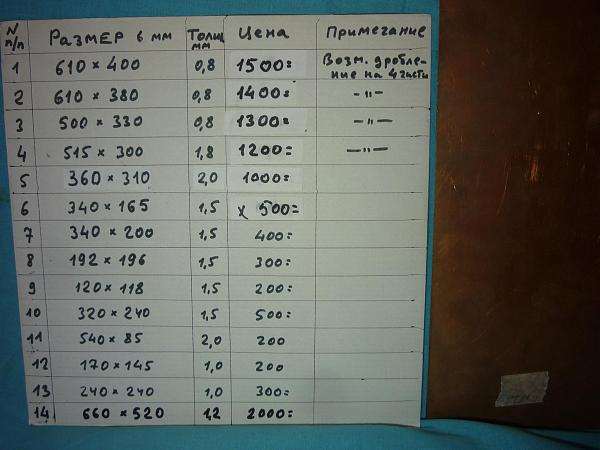 N п/п Размер в мм Толщ мм Цена Примечание
1 610 × 400 0,8 1500= Возм. дробле-ние на 4 части
2 610 × 380 0,8 1400= -"-
3 500 × 330 0,8 1300= -"-
4 515 × 300 1,8 1200= -"-
5 360 × 310 2,0 1000=
6 340 × 165 1,5 × 500=
7 340 × 200 1,5 400=
8 192 × 196 1,5 300=
9 120 × 118 1,5 200=
10 320 × 240 1,5 500=
11 540 × 85 2,0 200
12 170 × 145 1,0 200
13 240 × 240 1,0 300=
14 660 × 520 1,2 2000=